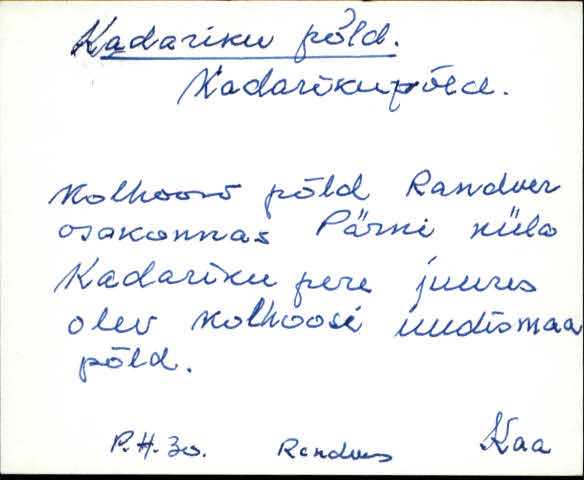 Kadariku põld.
Kadarikupõld.
Kolhoosi põld Randver
osakonnas Pärni küla
Kadariku pere juures
olev kolhoosi uudismaa
põld.
P.H. 30. Randver Kaa